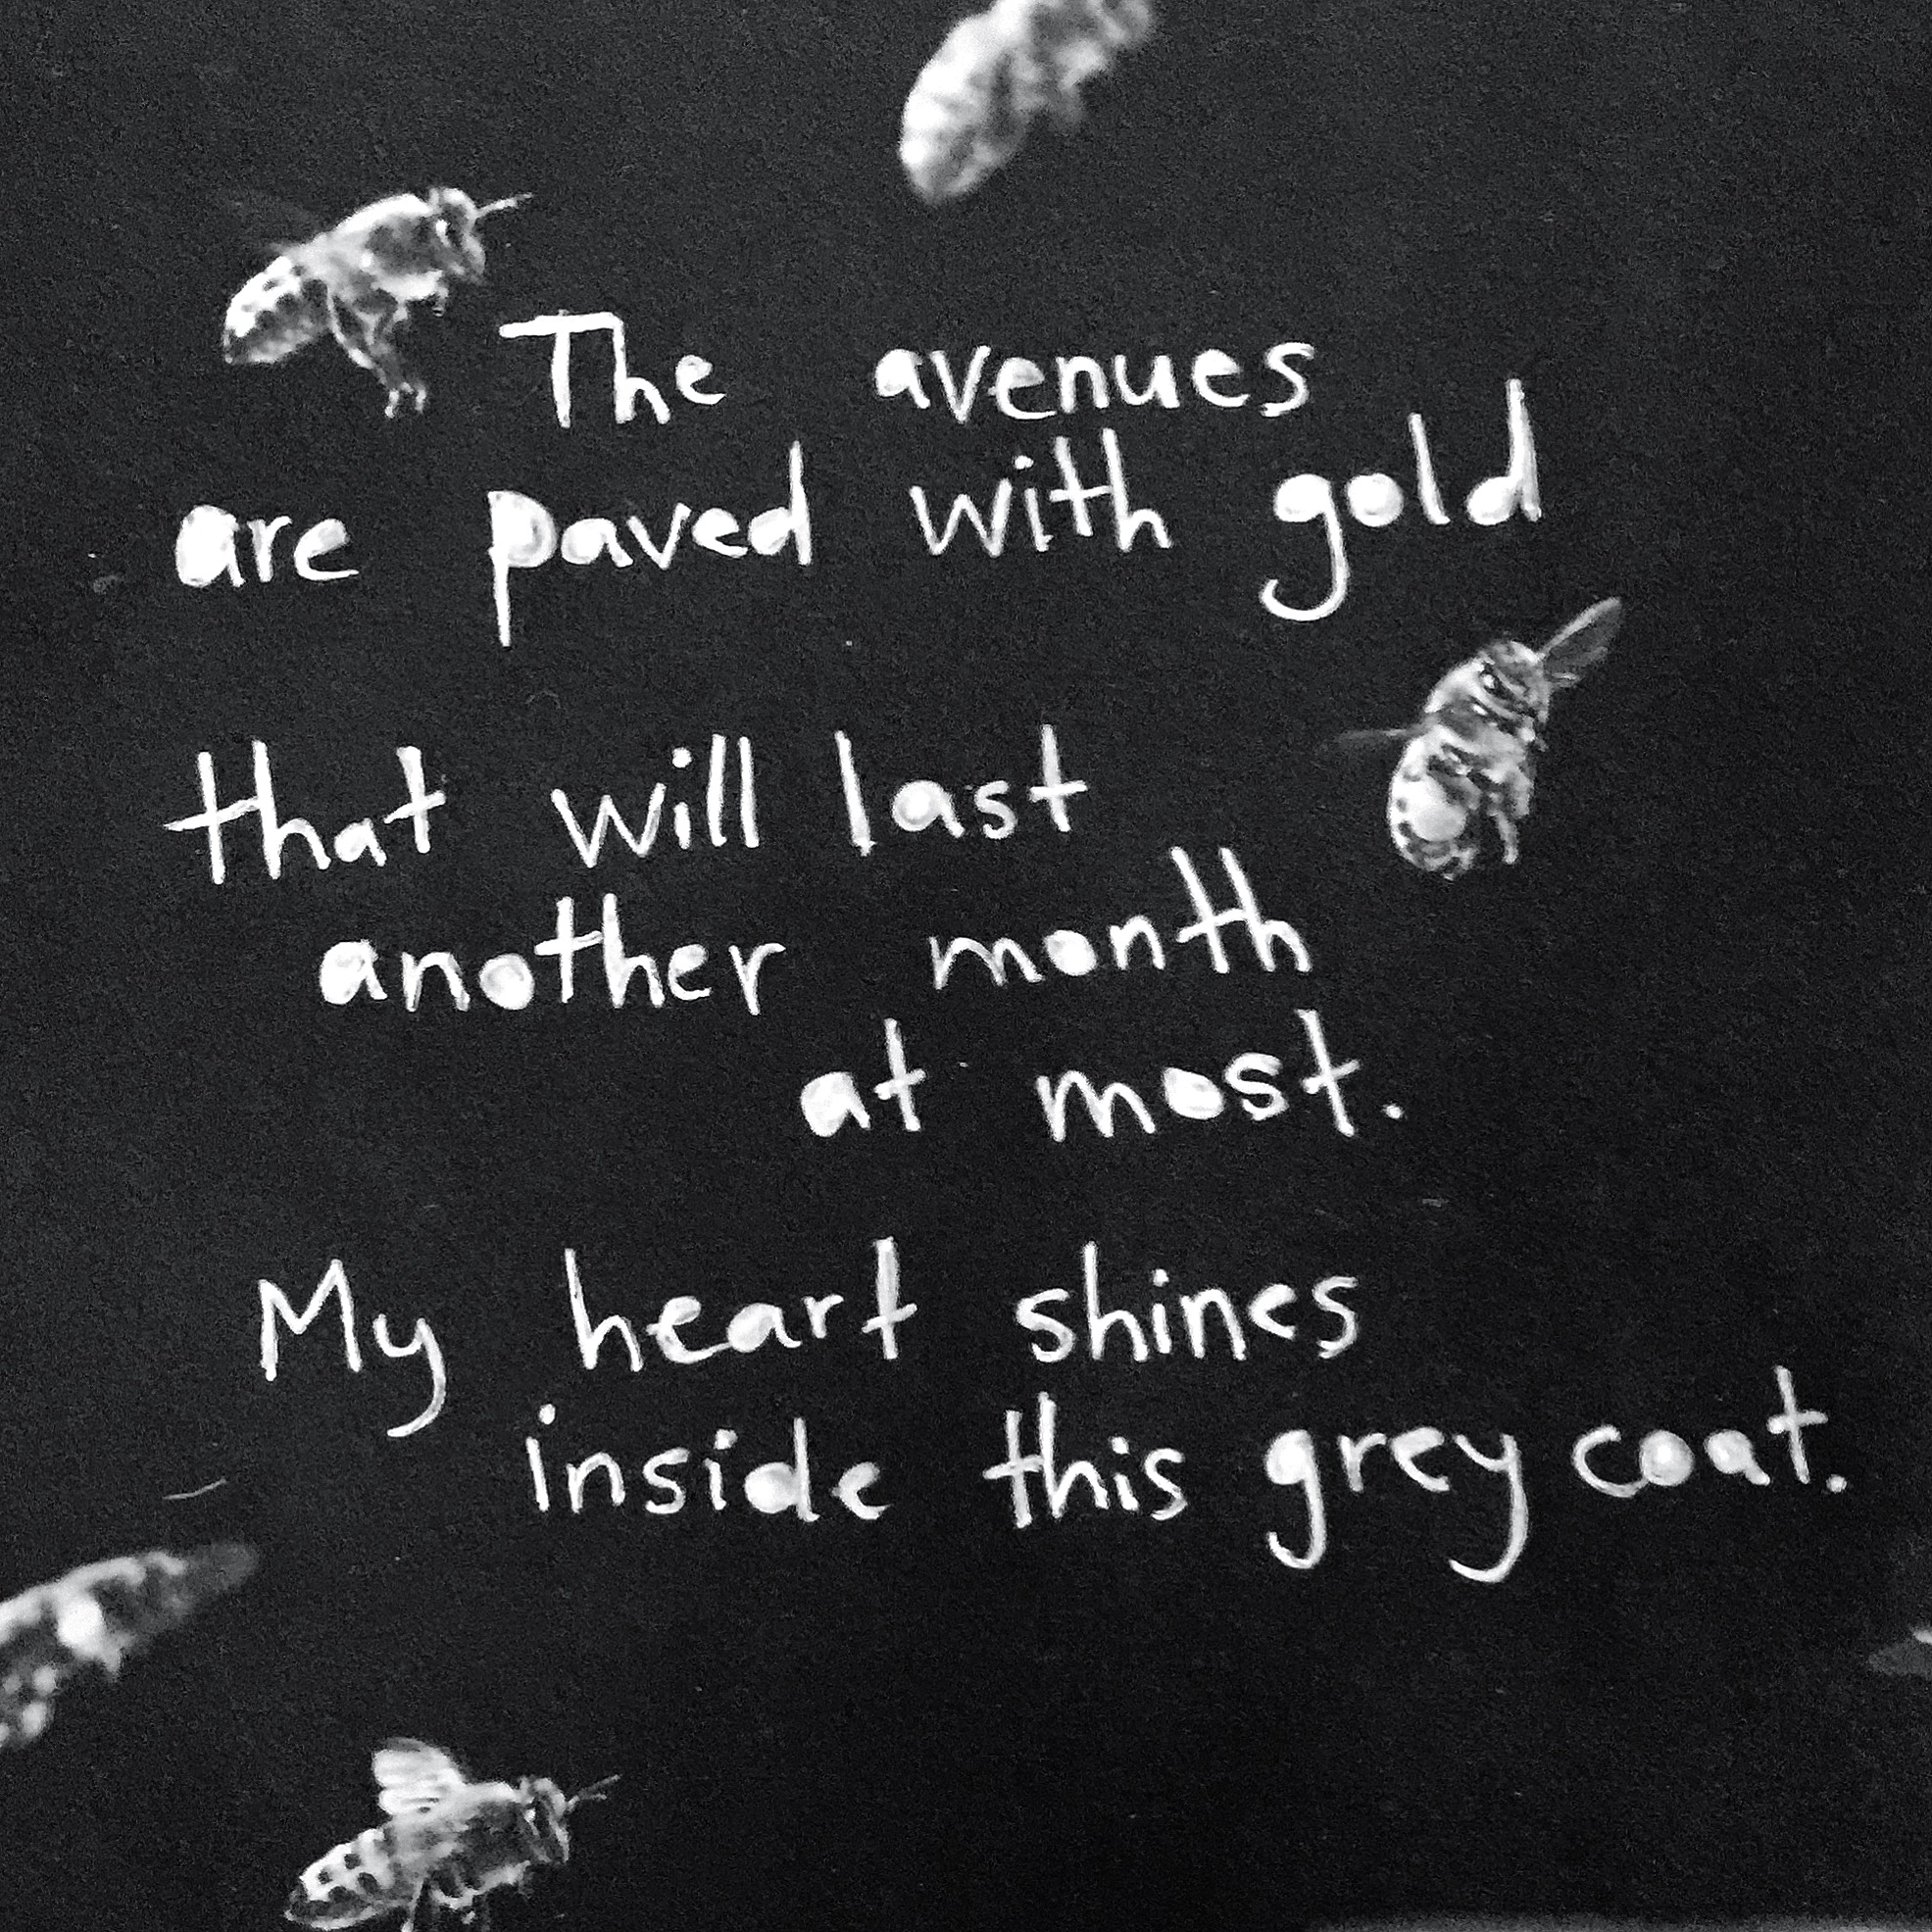 The avenues
are paved with gold
that will last
another month
at most.
My heart shines
inside this grey coat.